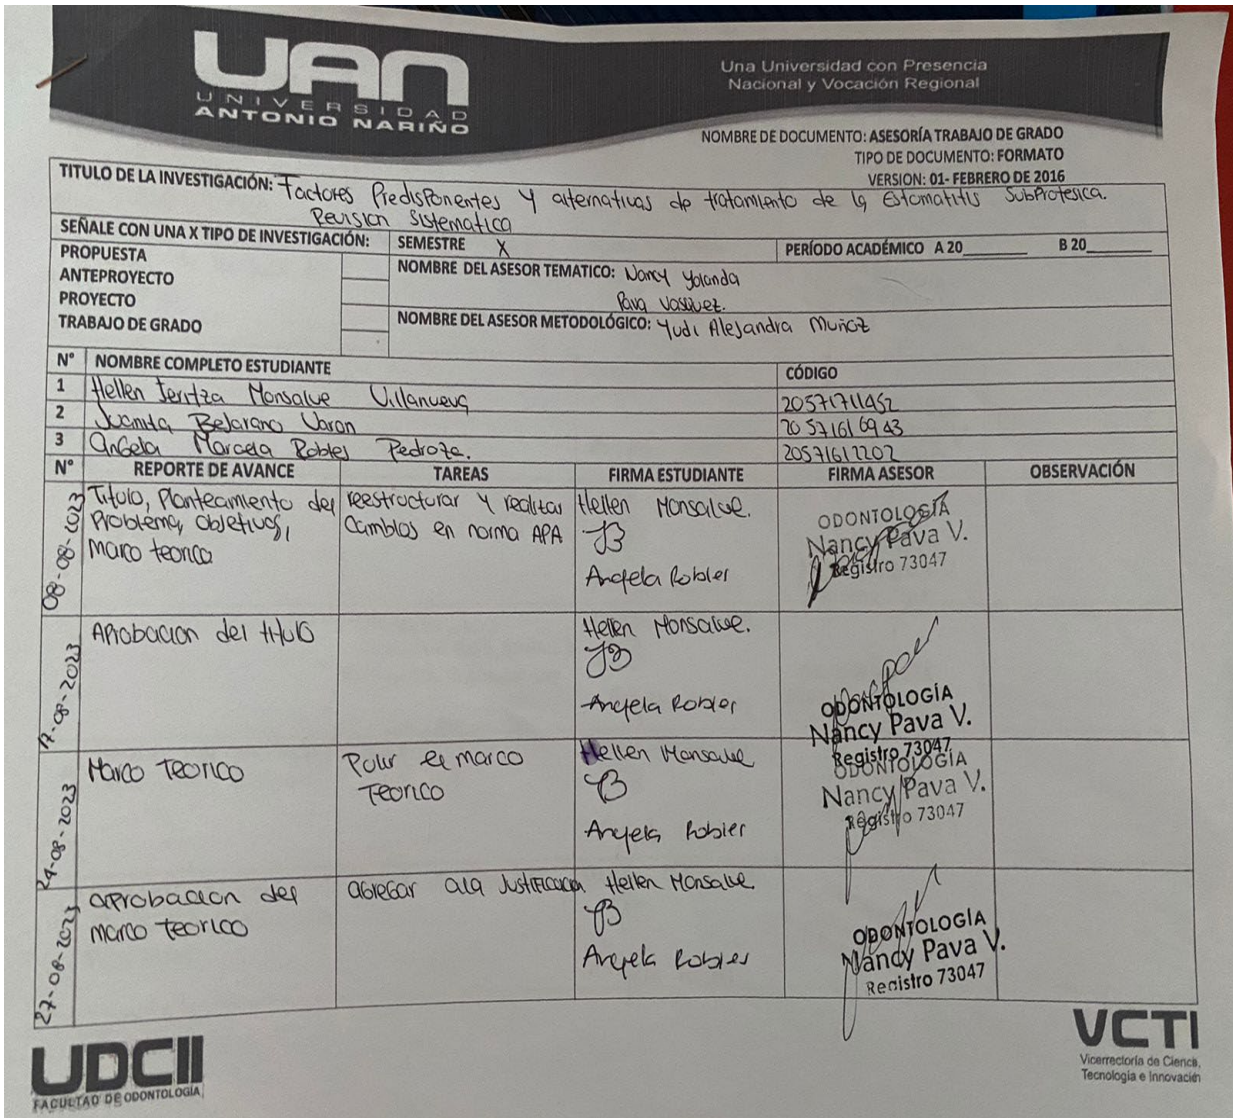 UAN
UNIVERSIDAD
ANTONIO NARIÑO
Una Universidad con Presencia
Nacional y Vocación Regional
NOMBRE DE DOCUMENTO: ASESORÍA TRABAJO DE GRADO
TIPO DE DOCUMENTO: FORMATO
VERSION: 01- FEBRERO DE 2016
TITULO DE LA INVESTIGACIÓN: Factores Predisponentes y alternativas de tratamiento de la Estomatitis SubProtesica.
Revision Sistematica
SEÑALE CON UNA X TIPO DE INVESTIGACIÓN:
SEMESTRE X
PERÍODO ACADÉMICO A 20_______ B 20_______
PROPUESTA
ANTEPROYECTO
PROYECTO
TRABAJO DE GRADO
NOMBRE DEL ASESOR TEMATICO: Nancy Yolanda
Pava Vasquez.
NOMBRE DEL ASESOR METODOLÓGICO: Yudi Alejandra Muñoz
N° NOMBRE COMPLETO ESTUDIANTE CÓDIGO
1 Hellen Jeritza Monsalve Villanueva 20571711452
2 Juanita Bejarano Varon 20571616943
3 Angela Marcela Robles Pedroza. 20571612202
N° REPORTE DE AVANCE TAREAS FIRMA ESTUDIANTE FIRMA ASESOR OBSERVACIÓN
08-08-2023
Titulo, Planteamiento del
Problema, objetivos,
marco teorico
reestructurar y realizar
Cambios en norma APA
Hellen Monsalve.
JB
Angela Robles
ODONTOLOGÍA
Nancy Pava V.
Registro 73047
17-08-2023
Aprobacion del titulo
Hellen Monsalve.
JB
Angela Robles
ODONTOLOGÍA
Nancy Pava V.
Registro 73047
24-08-2023
Marco Teorico
Pulir el marco
Teorico
Hellen Monsalve
JB
Angela Robles
ODONTOLOGÍA
Nancy Pava V.
Registro 73047
27-08-2023
aprobacion del
marco teorico
agregar a la Justificacion
Hellen Monsalve.
JB
Angela Robles
ODONTOLOGÍA
Nancy Pava V.
Registro 73047
UDCII
FACULTAD DE ODONTOLOGÍA
VCTI
Vicerrectoría de Ciencia,
Tecnología e Innovación